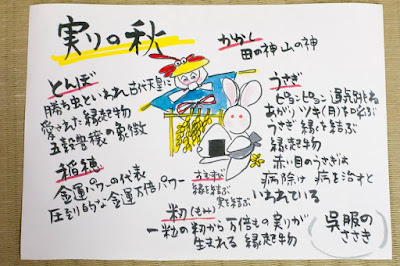 実りの秋
とんぼ
勝ち虫といわれ古代天皇に
愛された縁起物
五穀豊穣の象徴
稲穂
金運パワーの代表
圧到的な金運万倍パワー
かかし
田の神山の神
うさぎ
ピョンピョン運気跳ね
あがりツキ(月)を呼ぶ
うさぎ 縁を結ぶ
縁起物
赤い目のうさぎは
病除け 病を治すと
いわれている
おむすび
縁を結ぶ
実を結ぶ
籾(もみ)
一粒の籾から万倍もの実りが
生まれる 縁起物
呉服の
ささき